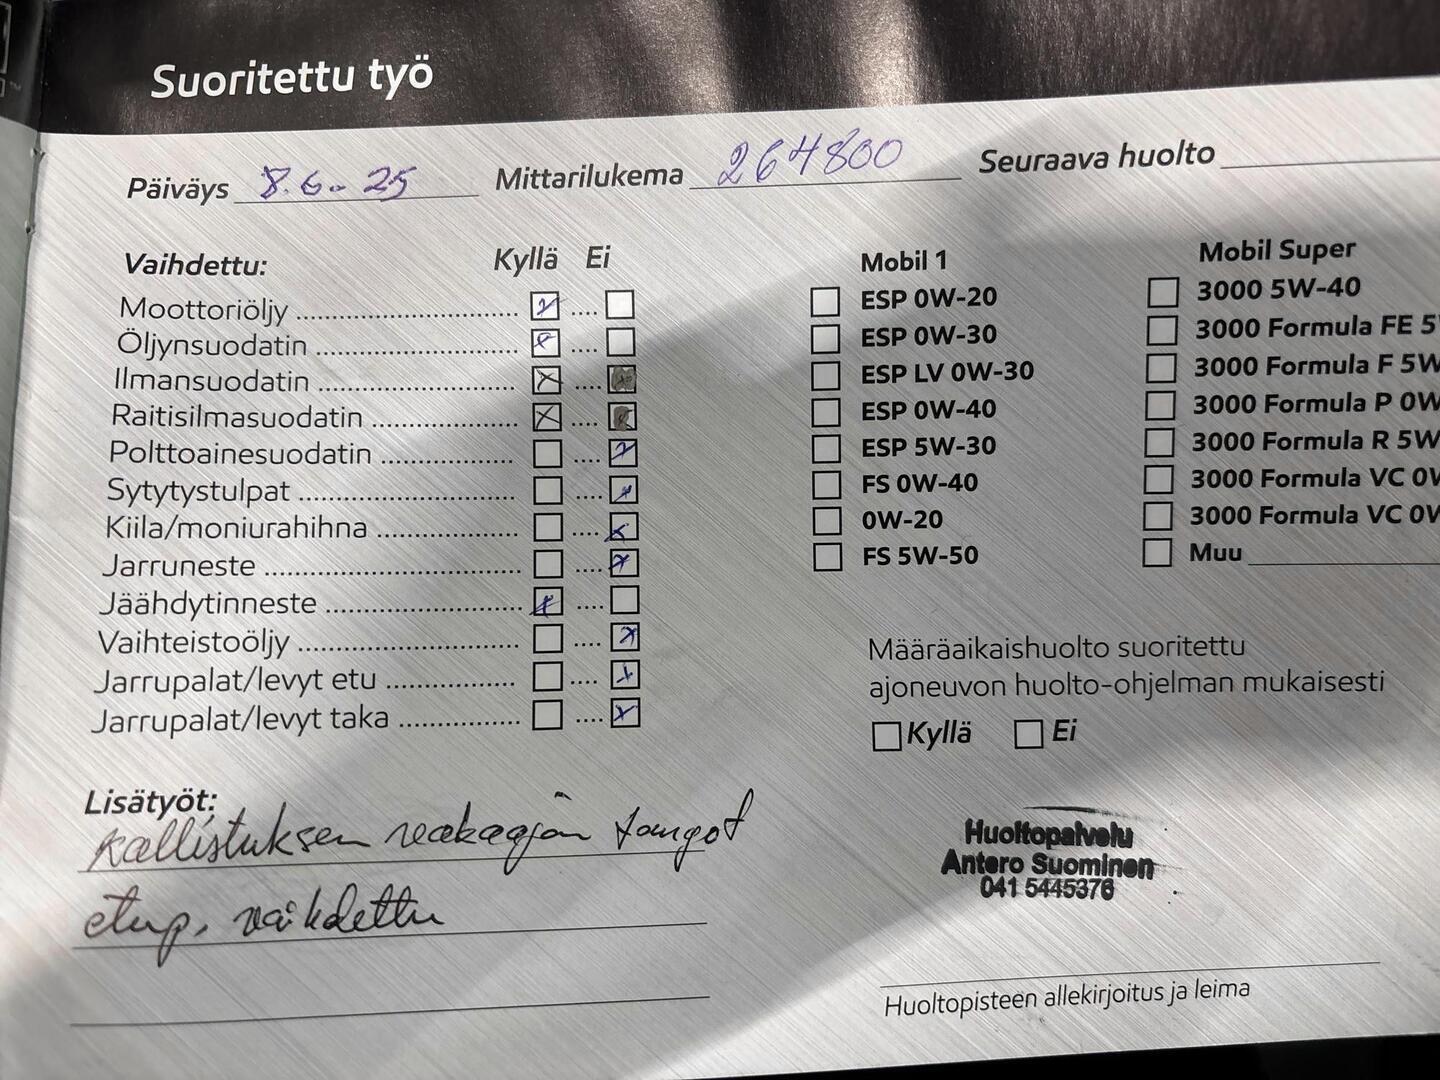 Suoritettu työ
Päiväys 8.6.-25 Mittarilukema 264800 Seuraava huolto
Vaihdettu: Kyllä Ei
Moottoriöljy
Öljynsuodatin
Ilmansuodatin
Raitisilmasuodatin
Polttoainesuodatin
Sytytystulpat
Kiila/moniurahihna
Jarruneste
Jäähdytinneste
Vaihteistoöljy
Jarrupalat/levyt etu
Jarrupalat/levyt taka
Mobil 1
ESP 0W-20
ESP 0W-30
ESP LV 0W-30
ESP 0W-40
ESP 5W-30
FS 0W-40
0W-20
FS 5W-50
Mobil Super
3000 5W-40
3000 Formula FE 5W
3000 Formula F 5W
3000 Formula P 0W
3000 Formula R 5W
3000 Formula VC 0W
3000 Formula VC 0W
Muu
Määräaikaishuolto suoritettu
ajoneuvon huolto-ohjelman mukaisesti
Kyllä Ei
Lisätyöt:
Kallistuksen vakaajan tangot
etup. vaihdettu
Huoltopalvelu
Antero Suominen
041 5445376
Huoltopisteen allekirjoitus ja leima